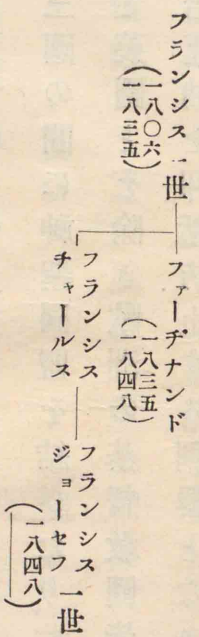 フランシス一世
(一八〇六
一八三五)
ファーヂナンド
(一八三五
一八四八)
フランシス
チャールス
フランシス
ジョーセフ一世
(一八四八)